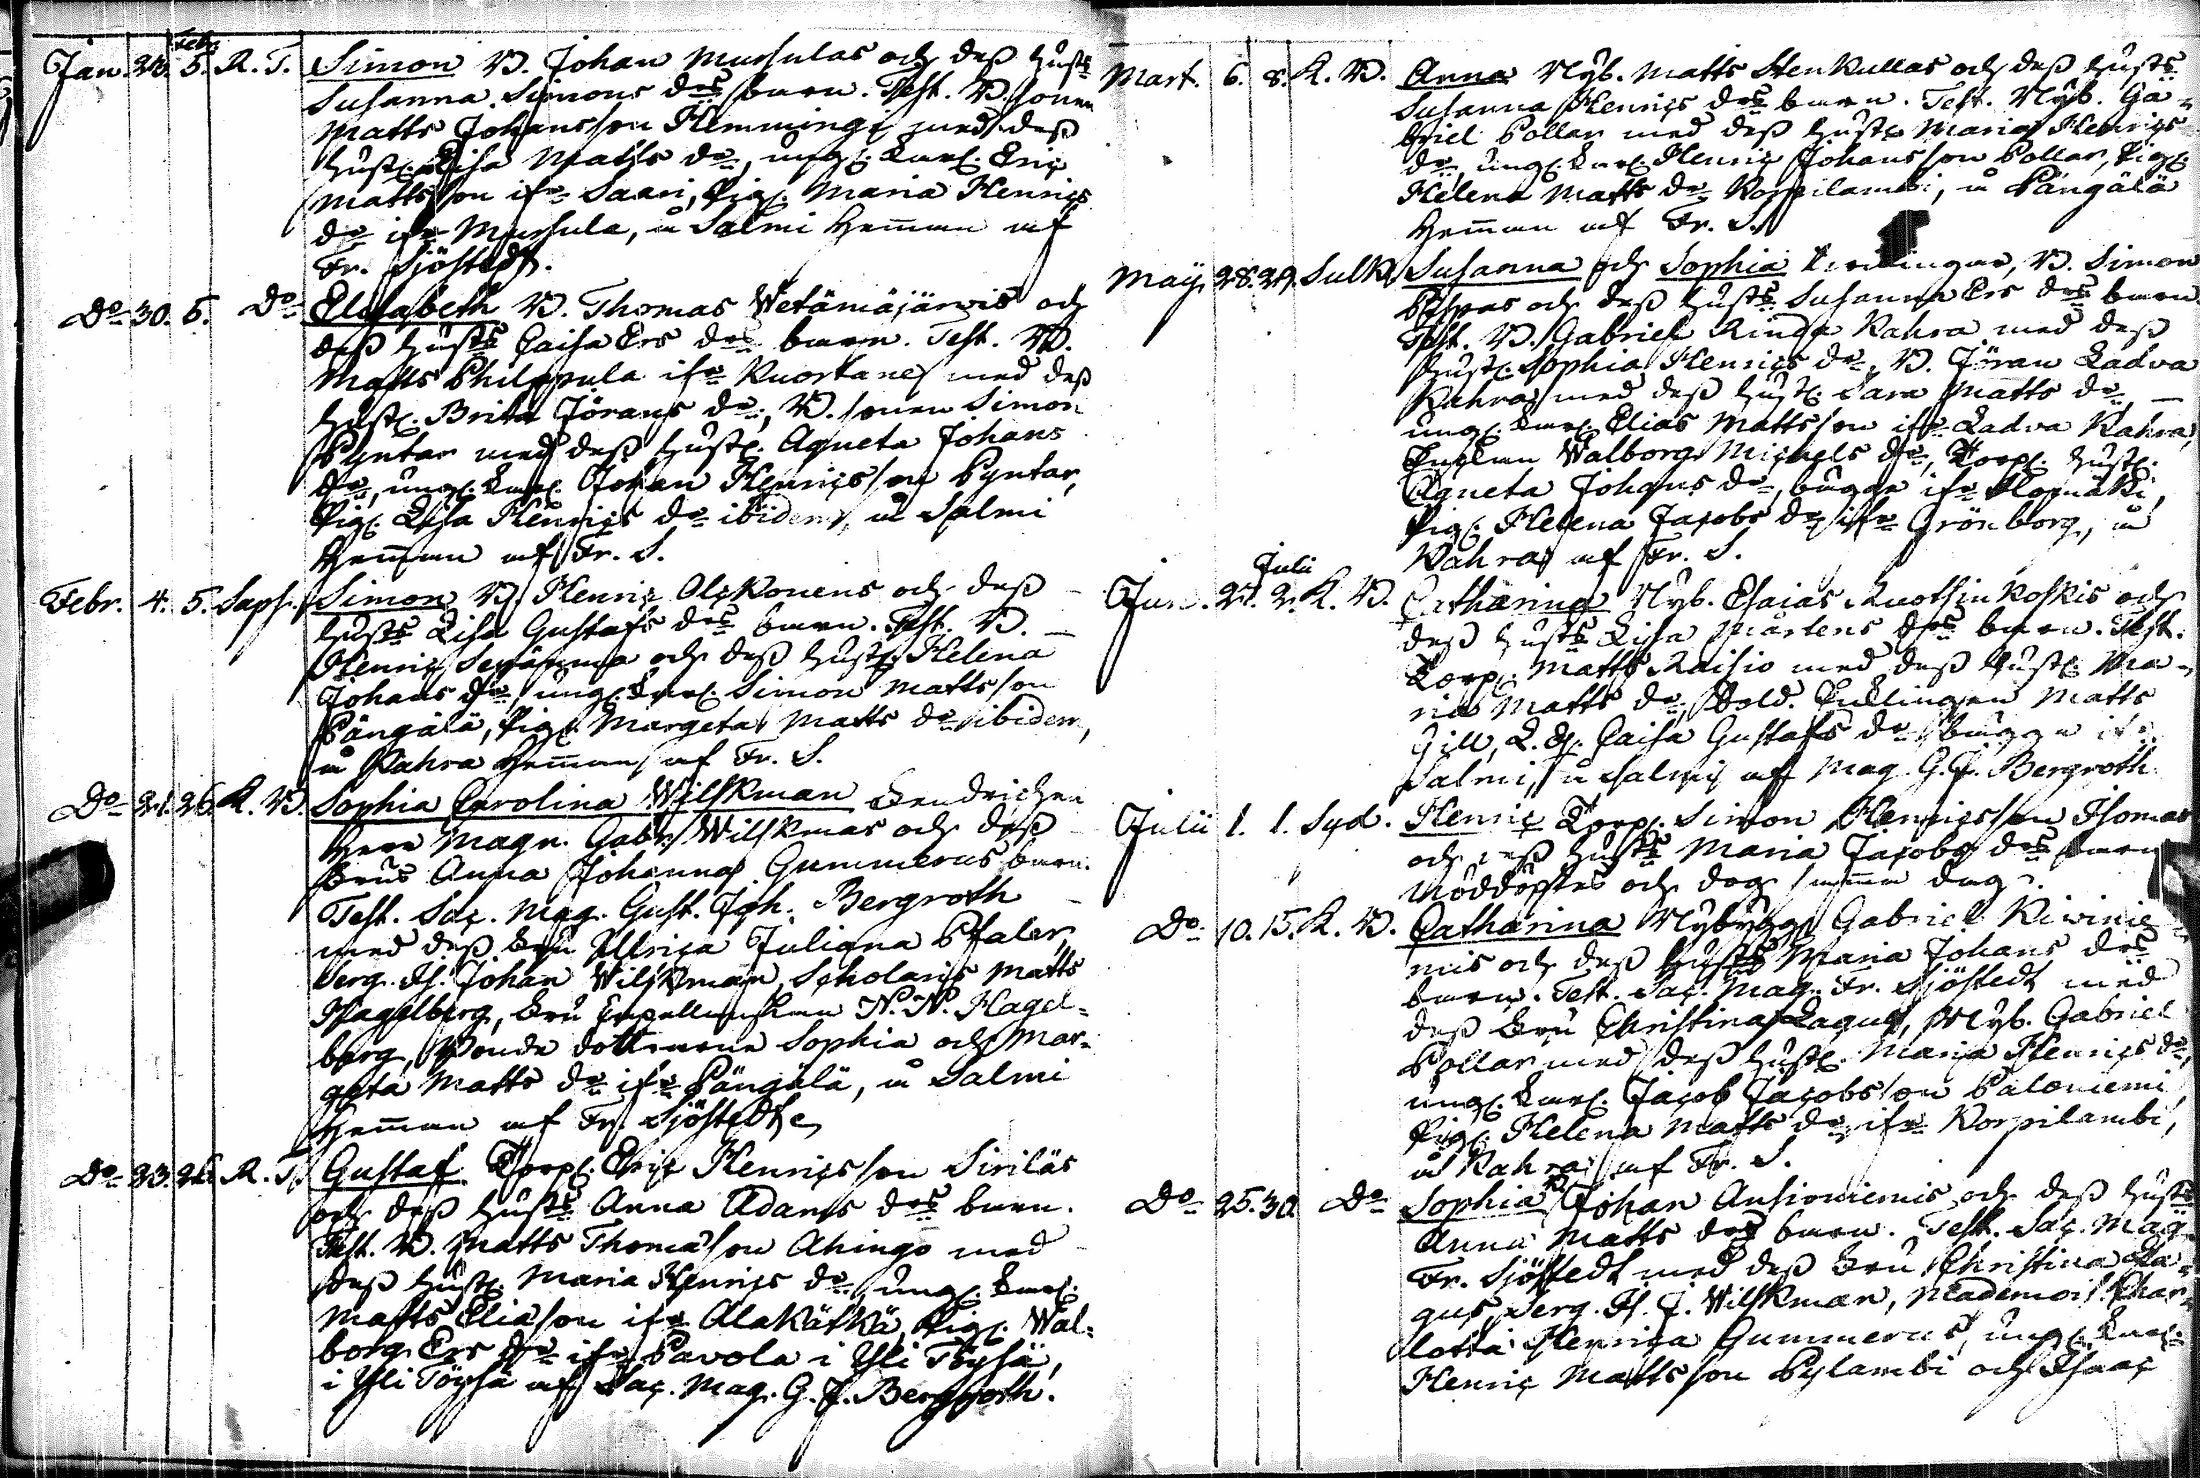 Febr.
Jan. 28. 5. R. T. Simon B. Johan Mursulas och deß hust:s
Susanna Simons d:rs barn. Test. B. sonen
Matts Johansson Flemming med deß
hust. Lisa Matts d:r, ung. Karl. Eric
Mattsson ifr. Saari, Pig. Maria Henrics
d:r ifr. Mursula, å Salmi Hemman af
Fr. Sjöstedt.
D:o 30. 5. D:o Elisabeth B. Thomas Wetämäjärvis och
deß hust:s Caisa Ers d:rs barn. Test. B.
Matts Philppula ifr. Kuortane med deß
hust. Brita Jörans d:r, B. sonen Simon
Pyntar med deß hust. Agneta Johans
d:r, ung. Karl. Johan Henricsson Pyntar,
Pig. Lisa Henrics d:r ibidem, å Salmi
Hemman af Fr. S.
Febr. 4. 5. Saps. Simon B. Henric Olckonens och deß
hust:s Lisa Gustafs d:rs barn. Test. B.
Henric Seppämma och deß hust. Helena
Johans d:r, ung. Karl. Simon Mattsson
Pångälä, Pig. Margeta Matts d:r ibidem,
å Rahra Hemman af Fr. S.
D:o 21. 26. K. B. Sophia Carolina Wilskman
Herr Magn. Gabr. Wilskmas och deß
Frus Anna Johanna Gummerus barn.
Test. Sac. Mag. Gust. Joh. Bergroth
med deß Fru Ulrica Juliana Pfaler,
Serg. H. Johan Wilskman, Scholaris Matts
Hagelberg, Fru Capellanskan N. N. Hagel-
berg, Bonde döttrarna Sophia och Mar-
geta Matts d:r ifr. Pångälä, å Salmi
Hemman af Fr. Sjöstedt
D:o 23. 26. R. T. Gustaf Torp. Eric Henricsson Siriläs
och deß hust:s Anna Adams d:rs barn.
Test. B. Matts Thomasson Ahingo med
deß hust. Maria Henrics d:r, ung. Karl.
Matts Eliasson ifr. Alakätkä, Pig. Wal-
borg Ers d:r ifr. Pavola i Yli Töysä,
i Yli Töysä af Sac. Mag. G. J. Bergroth.
Mart. 6. 8. K. B. Anna Nyb. Matts Stenkullas och deß hust:s
Susanna Henrics d:rs barn. Test. Nyb. Ga-
briel Pollar med deß hust. Maria Henrics
d:r, ung. Karl. Henric Johansson Pollar, Pig.
Helena Matts d:r Korpilambi, å Pångälä
Hemman af Fr. S.
Maji 28. 29. Sulk. Susanna och Sophia Tvillingar, B. Simon
och deß hust:s Susanna Ers d:rs barn.
Test. B. Gabriel Rinda Rahra med deß
hust. Sophia Henrics d:r, B. Jöran Ladva
Rahra med deß hust. Sara Matts d:r,
ung. Karl. Elias Mattsson ifr. Ladva Rahra,
Enkan Walborg Michels d:r, Torp. hust.
Agneta Johans d:r, bägge ifr.
Pig. Helena Jacobs d:r ifr. Grönborg, å
Rahra af Fr. S.
Julii
Jun. 27. 2. K. B. Catharina Nyb. Esaias Ruotsinkoskis och
deß hust:s Lisa Mårtens d:rs barn. Test.
Torp. Matts Raisio med deß hust. Ma-
ria Matts d:r, Sold. Matts
Gill, Caisa Gustafs d:r bägge ifr.
Salmi, å Salmi af Mag. G. J. Bergroth
Julii 1. 1. Syd. Henric Torp. Simon Henricsson Thomas
och deß hust:s Maria Jacobs d:rs barn
Nöddöptes och dog samma dag.
D:o 10. 15. K. B. Catharina Nybygg. Gabriel Kivinie-
mis och deß hust:s Maria Johans d:rs
barn. Test. Sac. Mag. Fr. Sjöstedt med
deß Fru Christina Lagus, Nyb. Gabriel
Pollar med deß hust. Maria Henrics d:r,
ung. Karl. Jacob Jacobsson Paloniemi,
Pig. Helena Matts d:r ifr. Korpilambi,
å Rahra af Fr. S.
D:o 25. 30. D:o Sophia B. Johan Ansioniemis och deß hust:s
Anna Matts d:rs barn. Test. Sac. Mag.
Fr. Sjöstedt med deß Fru Christina La-
gus, Serg. H. J. Wilskman, Mademois. Char-
lotta Henrica Gummerus, ung. Karl.
Henric Mattsson Pylambi och Isaac